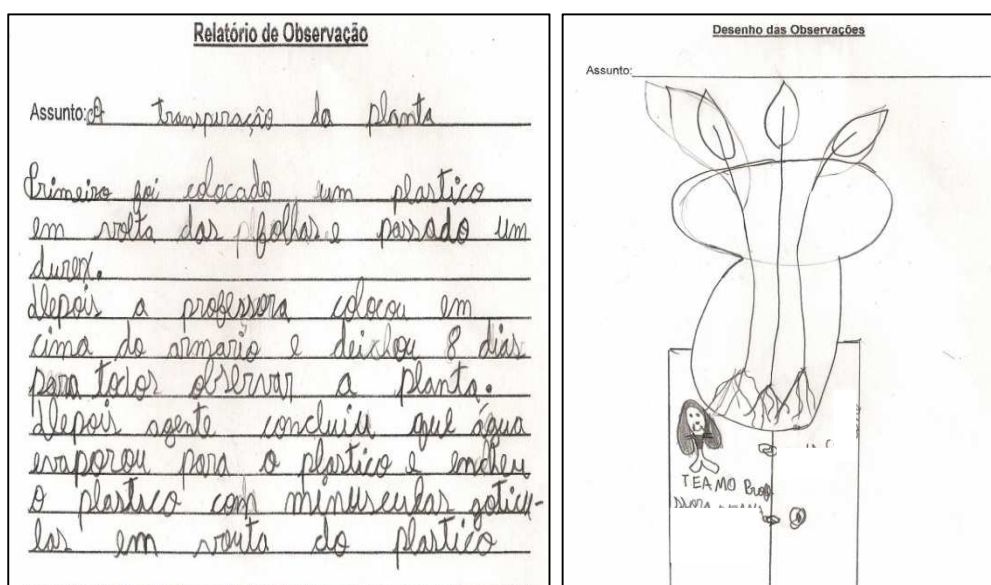 Relatório de Observação
Assunto: A transpiração da planta
Primeiro foi colocado um plastico
em volta das folhas e passado um
durex.
depois a professora colocou em
cima do armario e deixhou 8 dias
para todos observar a planta.
depois agente concluiu que água
evaporou para o plastico e encheu
o plastico com minusculas goticu-
las em vouta do plastico
Desenho das Observações
Assunto:
TEAMO Prof